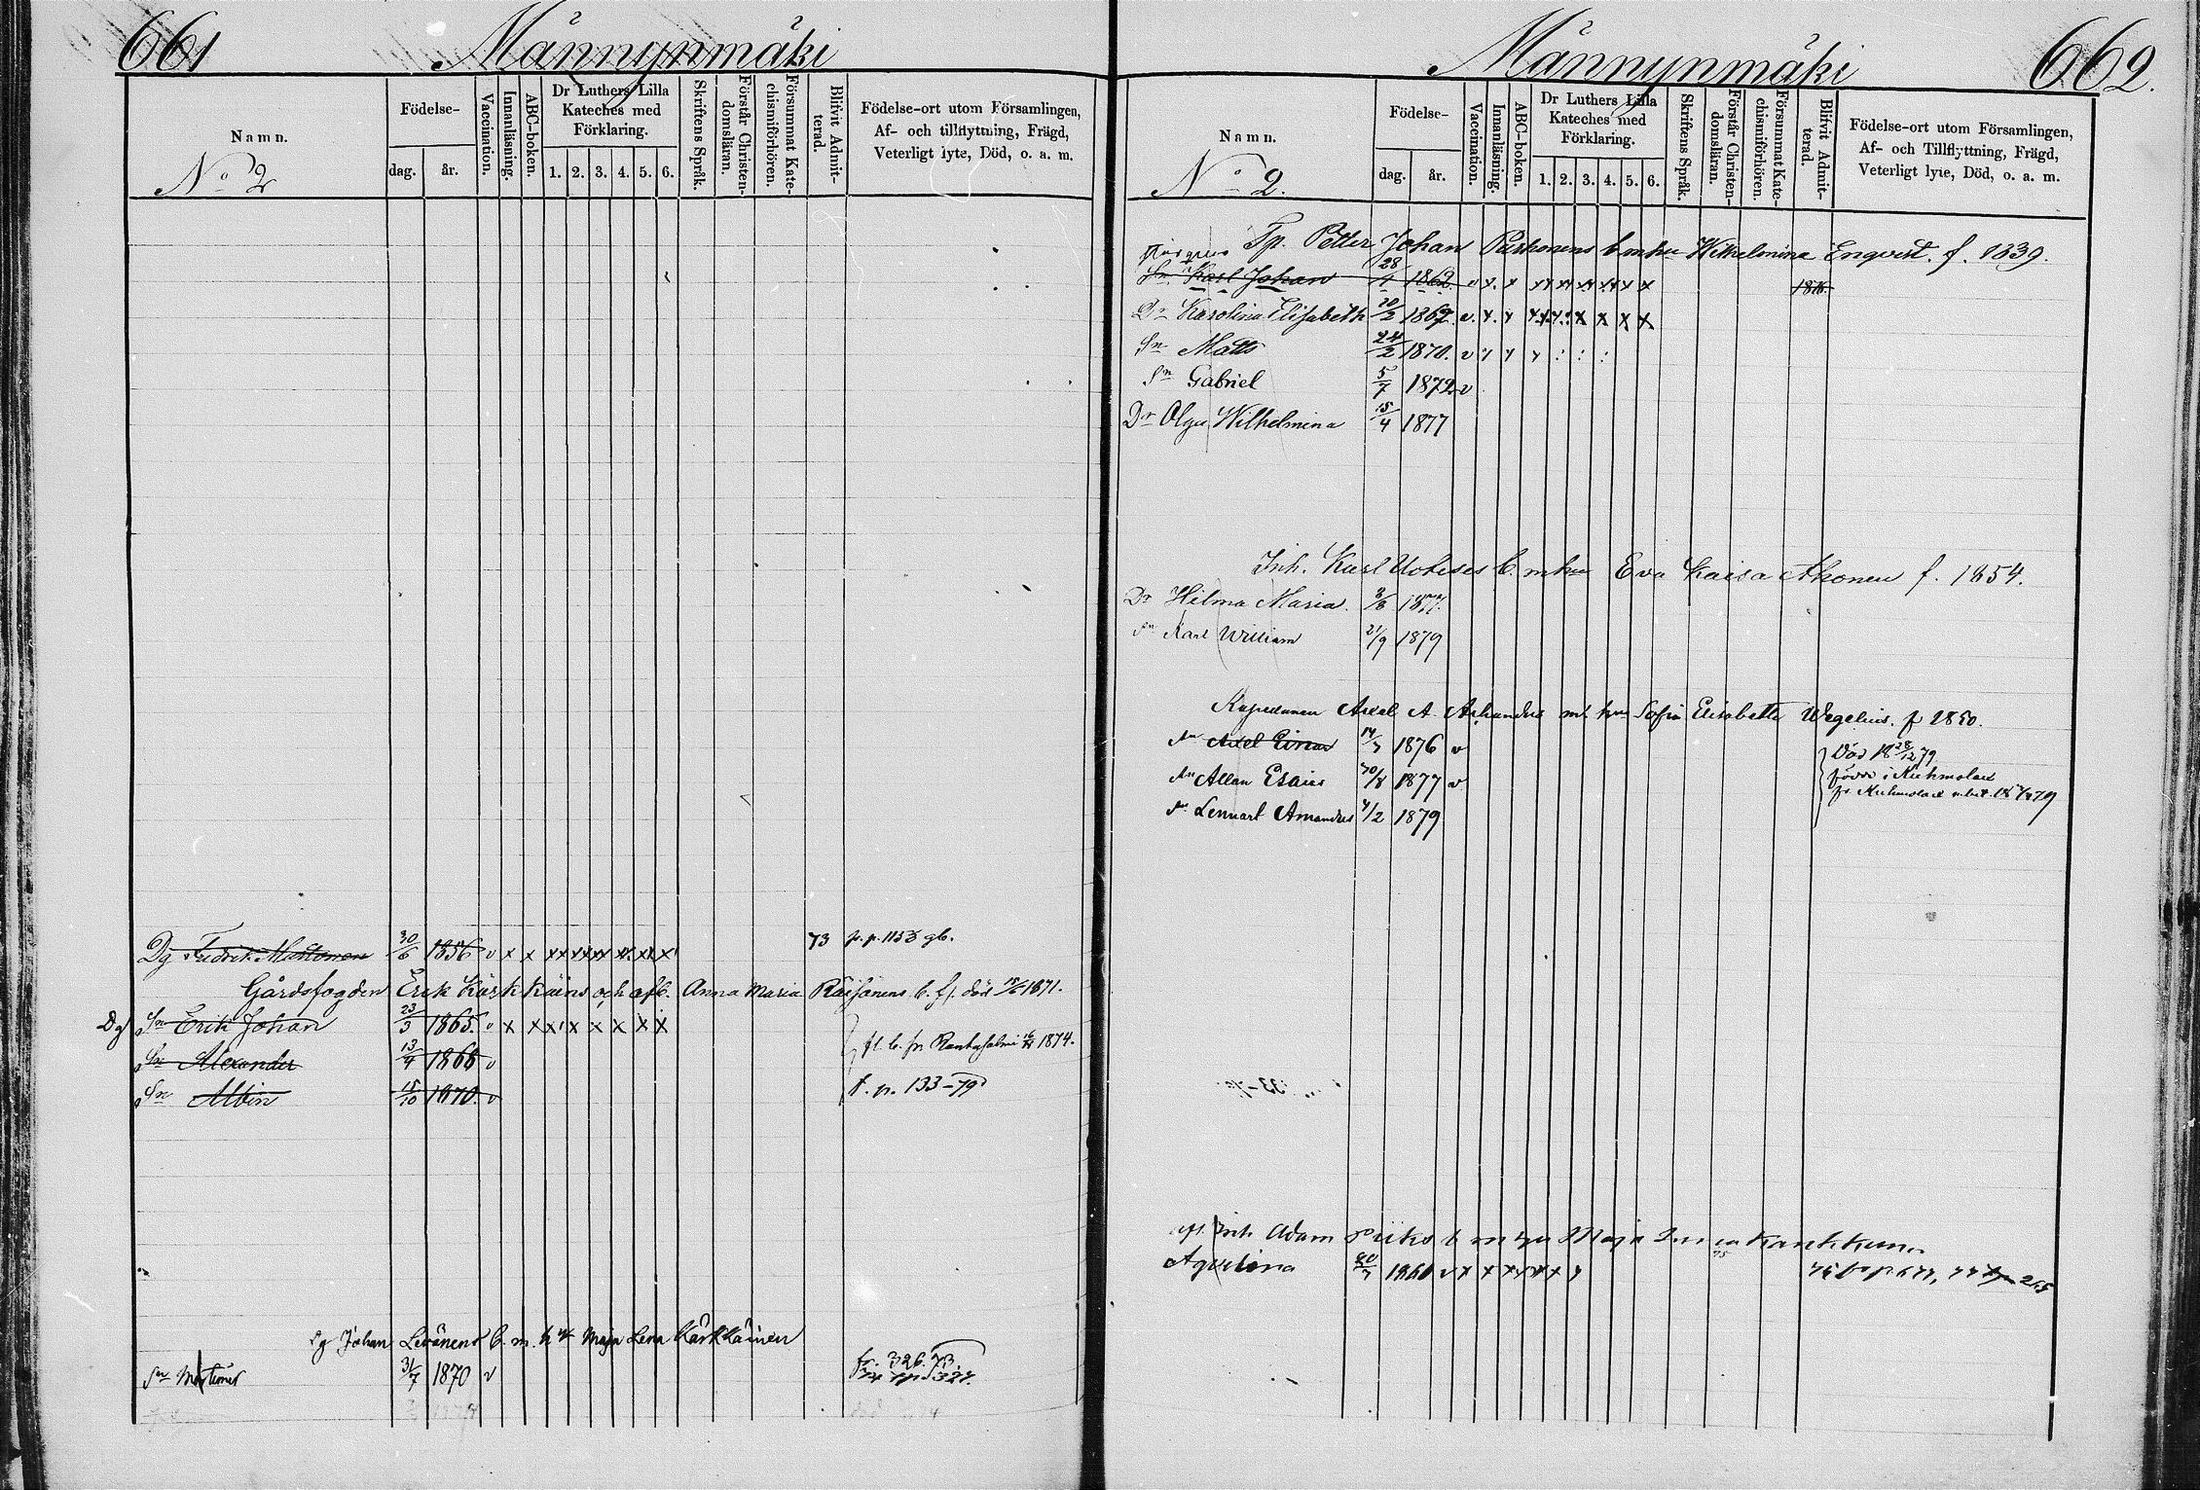 661 Männynmäki
Namn.
No 2
Födelse-
dag. år.
Vaccination.
Innanläsning.
ABC-boken.
Dr Luthers Lilla Kateches med Förklaring.
1. 2. 3. 4. 5. 6.
Skriftens Språk.
Förstår Christendomsläran.
Försummat Katechismiförhören.
Blifvit Admitterad.
Födelse-ort utom Församlingen,
Af- och tillflyttning, Frägd,
Veterligt lyte, Död, o. a. m.
Dg Fredrik Mattonen 30/6 1856 v x x xx xx xx xx xx x 73 p. p. 1153 gb.
Gårdsfogden Erik Kärkkäins och afl. Anna Maria Räisänens b. död 1871.
Dg Sn Erik Johan 23/3 1865 v x x x x x x x x
Sn Alexander 13/4 1868 v fl. b. fr. Rantasalmi 1874.
Sn Albin 15/10 1870 v f. p. 133-79
Johan Levänens b. m. h. u. Maja Lena Kärkkäinen
Sn 31/7 1870 v fr. 326. 73.
Männynmäki 662.
Namn.
No 2.
Födelse-
dag. år.
Vaccination.
Innanläsning.
ABC-boken.
Dr Luthers Lilla Kateches med Förklaring.
1. 2. 3. 4. 5. 6.
Skriftens Språk.
Förstår Christendomsläran.
Försummat Katechismiförhören.
Blifvit Admitterad.
Födelse-ort utom Församlingen,
Af- och Tillflyttning, Frägd,
Veterligt lyte, Död, o. a. m.
Tp. Petter Johan b. m. hu Wilhelmina Enqvist. f. 1839.
Sn Karl Johan 28/4 1862 v x x xx xx xx xx x x
Dr Karolina Elisabeth 20/2 1867 v. x. x
Sn Matts 24/2 1870. v x x x : : :
Sn Gabriel 5/7 1872 v
Dr Olga Wilhelmina 15/4 1877
Inh. Karl b. m. hu Eva Kaisa Ahonen f. 1854.
Dr Hilma Maria. 3/8 1877.
Sn Karl William 21/9 1879
Kapellanen Axel A. m. hu Sofia Elisabeth Wegelius. f 1850.
Sn Axel Einar 14/7 1876 v Död 18 28/12 79
Sn Allan Esaias 1877 v född i Kuhmolaks
Sn Lennart Amandus 4/2 1879
Inh. Adam b. m. hu Maja
1860 v x x x x x x x